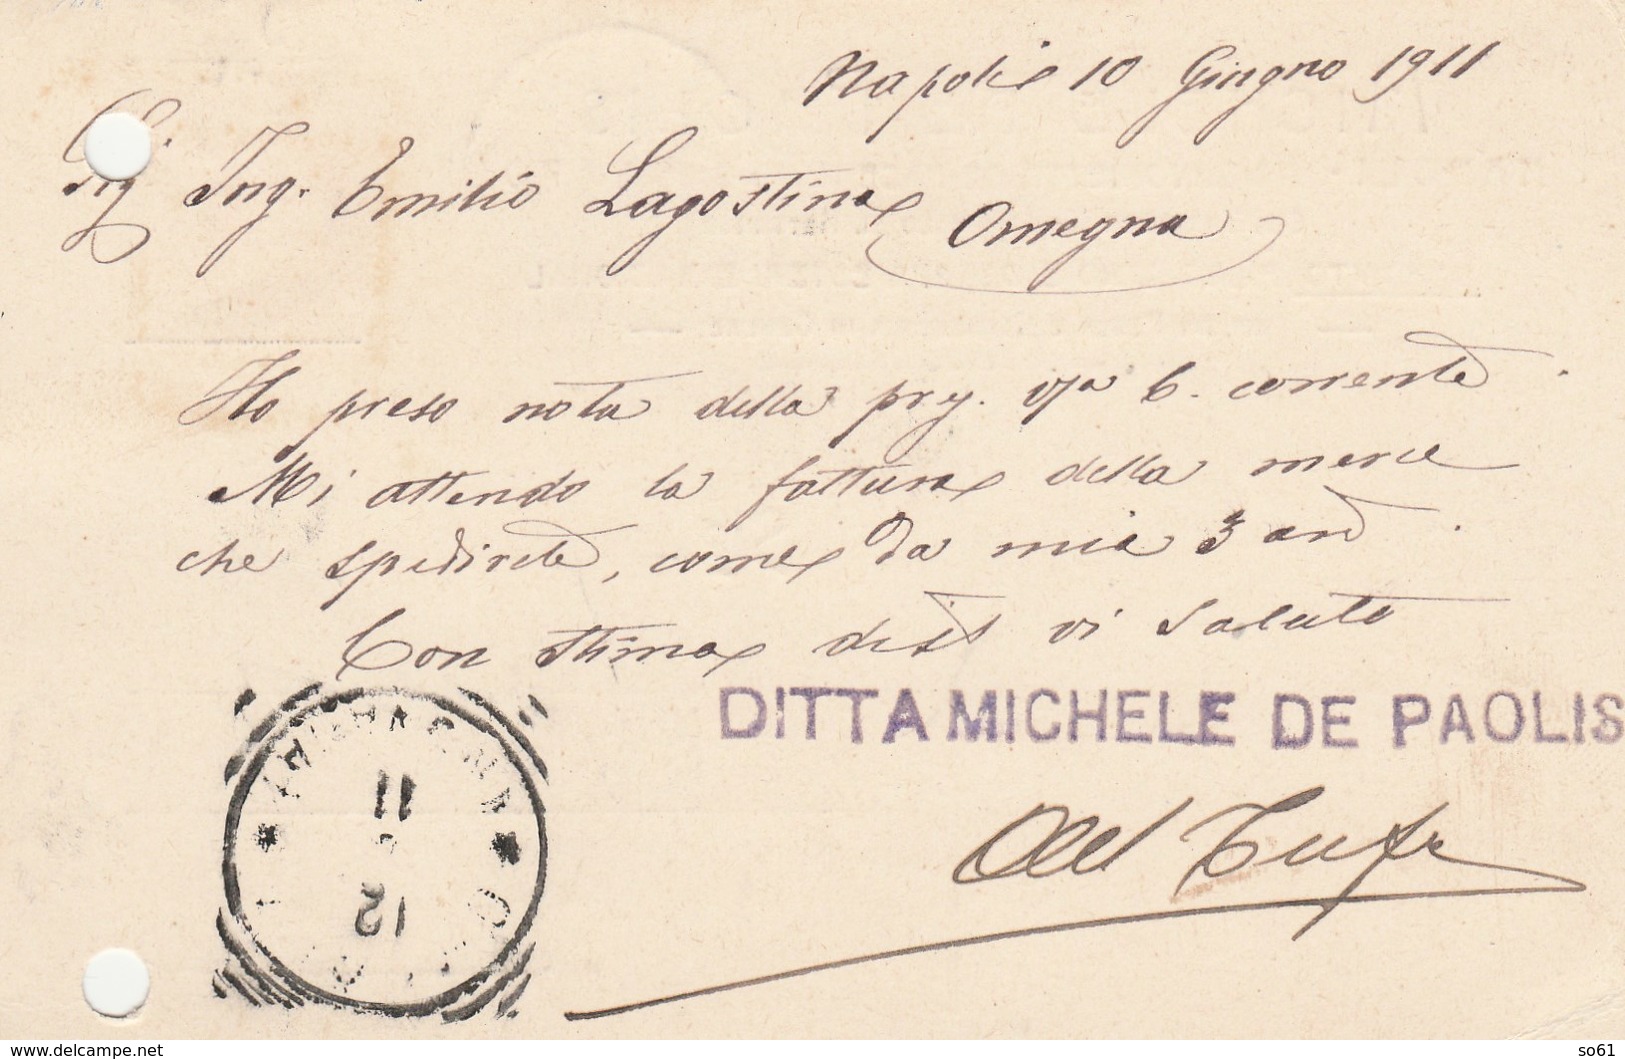 Napoli 10 Giugno 1911
Sig. Ing. Emilio Lagostina
Omegna
Ho preso nota della preg. vs/a 6. corrente.
Mi attendo la fattura della merce
che spedirete, come da mia 3 and.
Con stima dist vi saluto
DITTA MICHELE DE PAOLIS
11
12
www.delcampe.net
so61